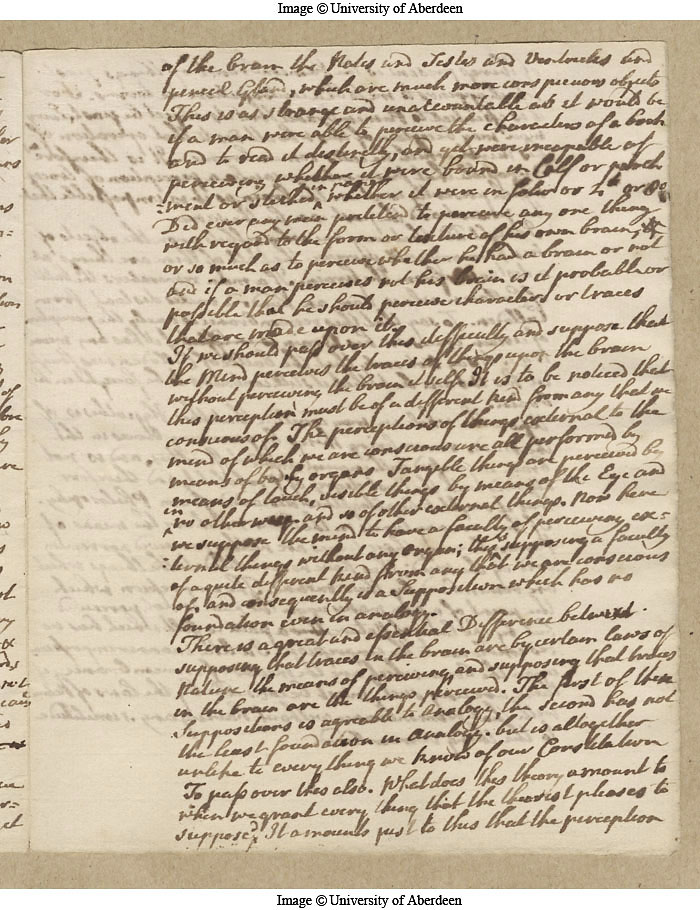 Image © University of Aberdeen
of the brain the Nates and Testes and Ventricles and
pineal Gland, which are much more conspicuous objects
This is as strange and unaccountable as it would be
if a man were able to perceive the characters of a book
and to read it distinctly, and yet were incapable of
perceiving whether it were bound in Calf or parch
=ment or stitched, whether it were in folio or 4to or 8o
Did ever any man pretend to perceive any one thing
with regard to the form or texture of his own brain,
or so much as to perceive whether he had a brain or not
And if a man perceives not his brain is it probable or
possible that he should perceive characters or traces
that are made upon it?
If we should pass over this difficulty and suppose that
the Mind perceives the traces of things upon the brain
without perceiving the brain it self. It is to be noticed that
this perception must be of a different kind from any that we are
conscious of. The perceptions of things external to the
mind of which we are conscious are all performed by
means of bodily organs Tangible things are perceived by
means of touch, visible things by means of the Eye and
in no other way and so of other external things. Now here
we suppose the mind to have a faculty of perceiving ex=
=ternal things without any organ; this is supposing a faculty
of a quite different kind from any that we are conscious
of, and consequently is a Supposition which has no
foundation even in analogy.
There is a great and essential Difference betwixt
supposing that traces in the brain are by certain laws of
Nature the means of perceiving and supposing that traces
in the brain are the things perceived. The first of these
Suppositions is agreable to analogy, the second has not
the least foundation in analogy. but is altogether
unlike to every thing we know of our Constitution
To pass over this also. What does this theory amount to
when we grant every thing that the theorist pleases to
suppose? It amounts just to this that the perception
Image © University of Aberdeen